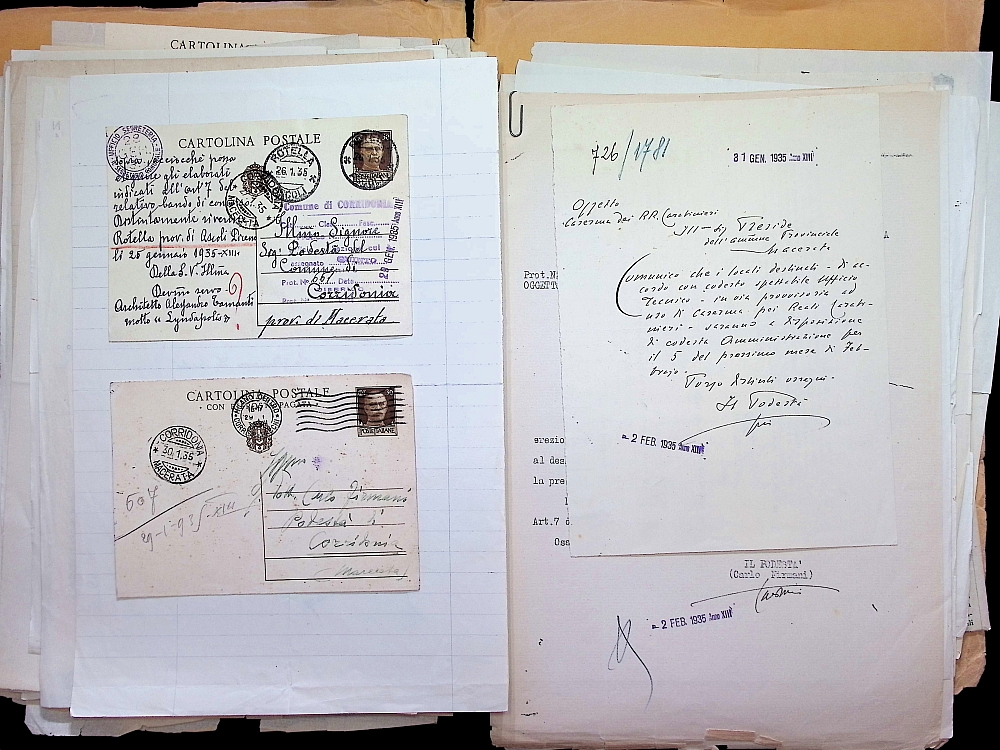 CARTOLINA
CARTOLINA POSTALE
UFFICIO SEGRETERIA
possa
gli elaborati
indicati all'art° 7 del
relativo bando di concorso.
Rotella prov. di Ascoli Piceno
lì 25 gennaio 1935-XIII.
Della S. V. Ill.ma
Dev.mo servo
Architetto Alessandro
motto "Lyndapolis"
ROTELLA
26.1.35
MACERATA
Comune di CORRIDONIA
Clas. Fasc.
Ill.mo Signore
Sig. Podestà del
Comune di
Prot. N. 651 Data
Corridonia
prov. di Macerata
28 GEN. 1935 Anno XIII
CARTOLINA POSTALE
POSTE ITALIANE
CORRIDONIA
30.1.35
MACERATA
607
29-1-935-XIII
Dott. Carlo Firmani
Podestà di
Corridonia
(Macerata)
726/1781
31 GEN. 1935 Anno XIII
Oggetto
Caserma dei RR. Carabinieri
Ill-mo Preside
dell'Amm.ne Provinciale
Macerata
Comunico che i locali destinati - di ac-
cordo con codesto spettabile Ufficio
Tecnico - in via provvisoria ad
uso di Caserma pei Reali Carabi-
nieri - saranno a disposizione
di codesta Amministrazione per
il 5 del prossimo mese di Feb-
braio.
Porgo distinti ossequi.
Il Podestà
- 2 FEB. 1935 Anno XIII
Prot. N.
OGGETTO
A
erezio
al des
la pre
Art.7 d
Oss
IL PODESTA'
(Carlo Firmani)
- 2 FEB. 1935 Anno XIII